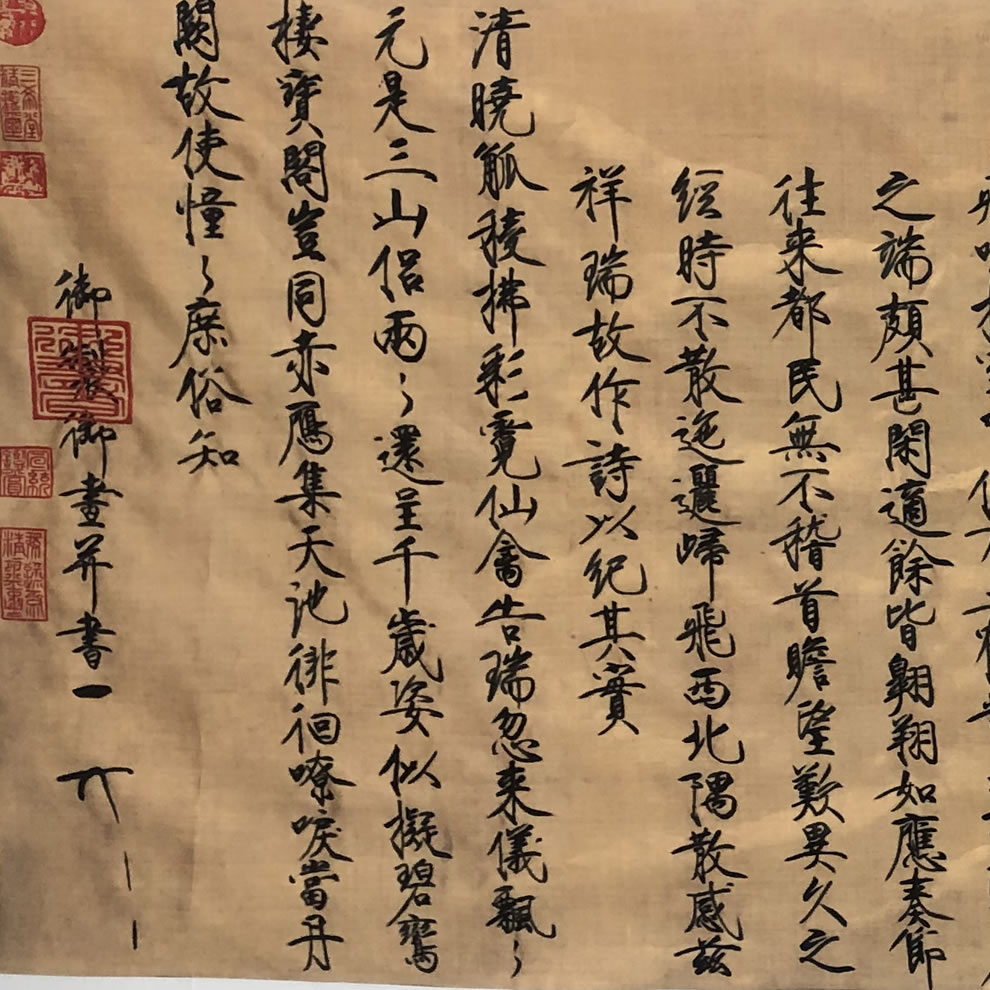 之端頗甚閑適餘皆翱翔如應奏節
往来都民無不稽首瞻望歎異久之
經時不散迤邐歸飛西北隅散感茲
祥瑞故作詩以紀其實
清曉觚稜拂彩霓仙禽告瑞忽来儀飄〻
元是三山侶兩〻還呈千歲姿似擬碧鸞
棲寶閣豈同赤鴈集天池徘徊嘹唳當丹
闕故使憧〻庶俗知
御製御畫并書
三希堂精鑒璽
宣統鑒賞
無逸齋精鑒璽